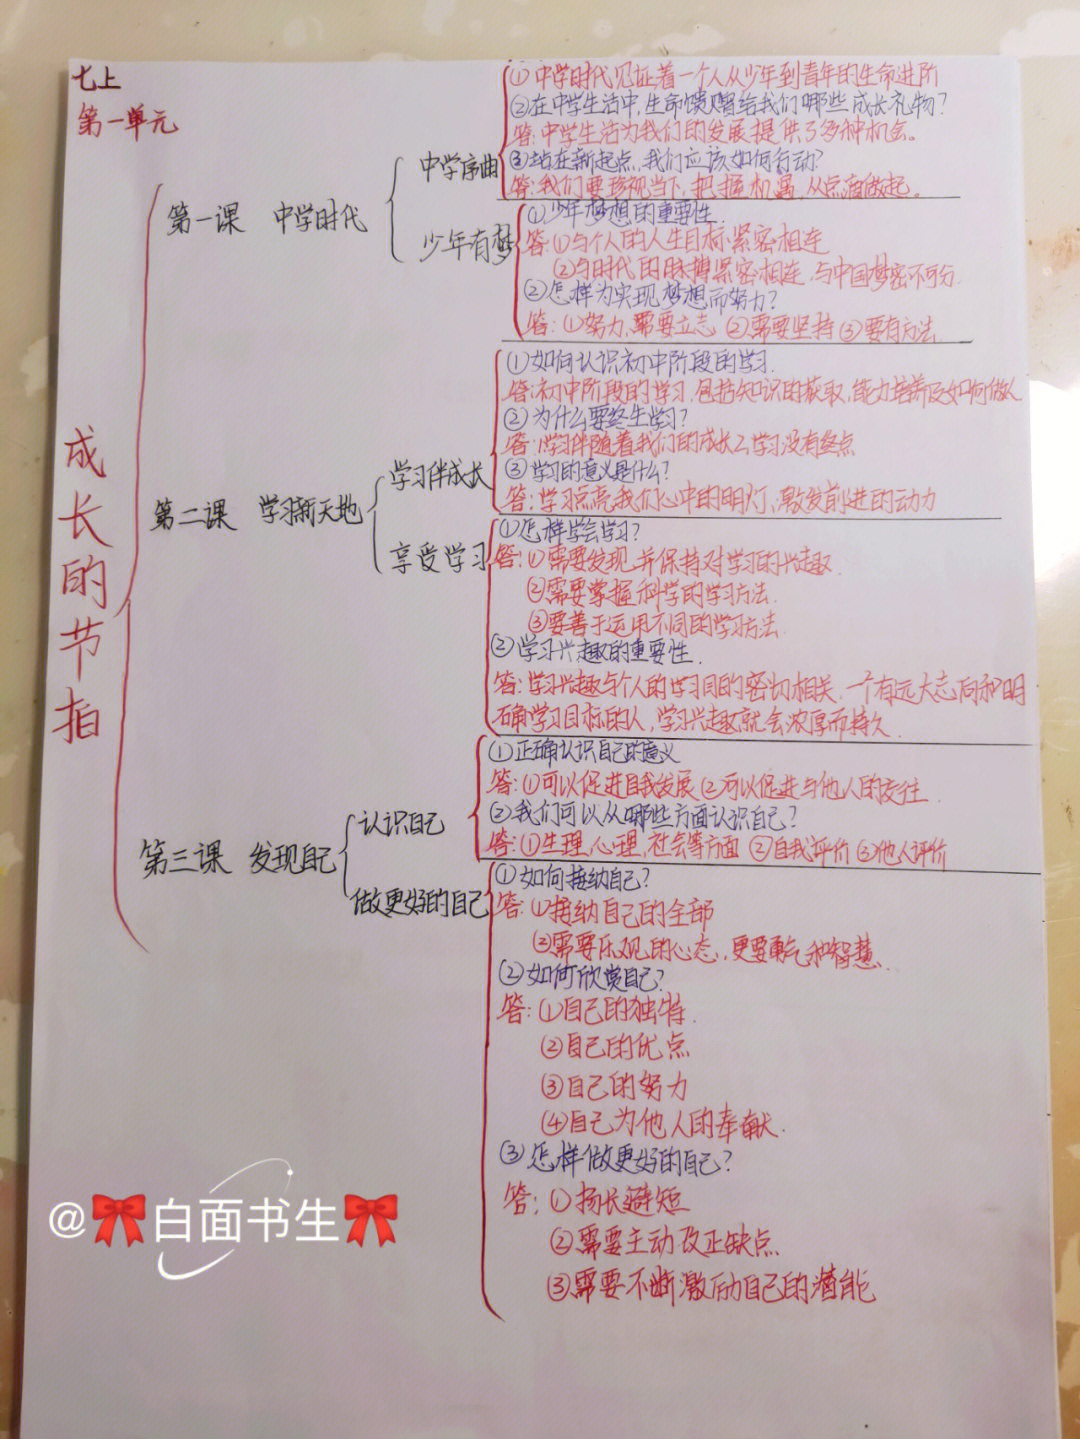 七上
第一单元
成长的节拍
第一课 中学时代
中学序曲
①中学时代见证着一个人从少年到青年的生命进阶
②在中学生活中,生命馈赠给我们哪些成长礼物?
答:中学生活为我们的发展提供了多种机会。
③站在新起点,我们应该如何行动?
答:我们要珍视当下,把握机遇,从点滴做起。
少年有梦
①少年梦想的重要性.
答:①与个人的人生目标紧密相连
②与时代的脉搏紧密相连,与中国梦密不可分.
②怎样为实现梦想而努力?
答:①努力,需要立志 ②需要坚持 ③要有方法
第二课 学习新天地
学习伴成长
①如何认识初中阶段的学习.
答:初中阶段的学习,包括知识的获取,能力培养及如何做人
②为什么要终生学习?
答:1.学习伴随着我们的成长 2.学习没有终点
③学习的意义是什么?
答:学习点亮我们心中的明灯,激发前进的动力
享受学习
①怎样学会学习?
答:①需要发现并保持对学习的兴趣.
②需要掌握科学的学习方法.
③要善于运用不同的学习方法.
②学习兴趣的重要性.
答:学习兴趣与个人的学习目的密切相关.一个有远大志向和明
确学习目标的人,学习兴趣就会浓厚而持久.
第三课 发现自己
认识自己
①正确认识自己的意义
答:①可以促进自我发展 ②可以促进与他人的交往.
②我们可以从哪些方面认识自己?
答:①生理,心理,社会等方面 ②自我评价 ③他人评价
做更好的自己
①如何接纳自己?
答:①接纳自己的全部
②需要乐观的心态,更要勇气和智慧.
②如何欣赏自己?
答:①自己的独特.
②自己的优点
③自己的努力
④自己为他人的奉献.
③怎样做更好的自己?
答:①扬长避短
②需要主动改正缺点.
③需要不断激励自己的潜能
@🎀白面书生🎀